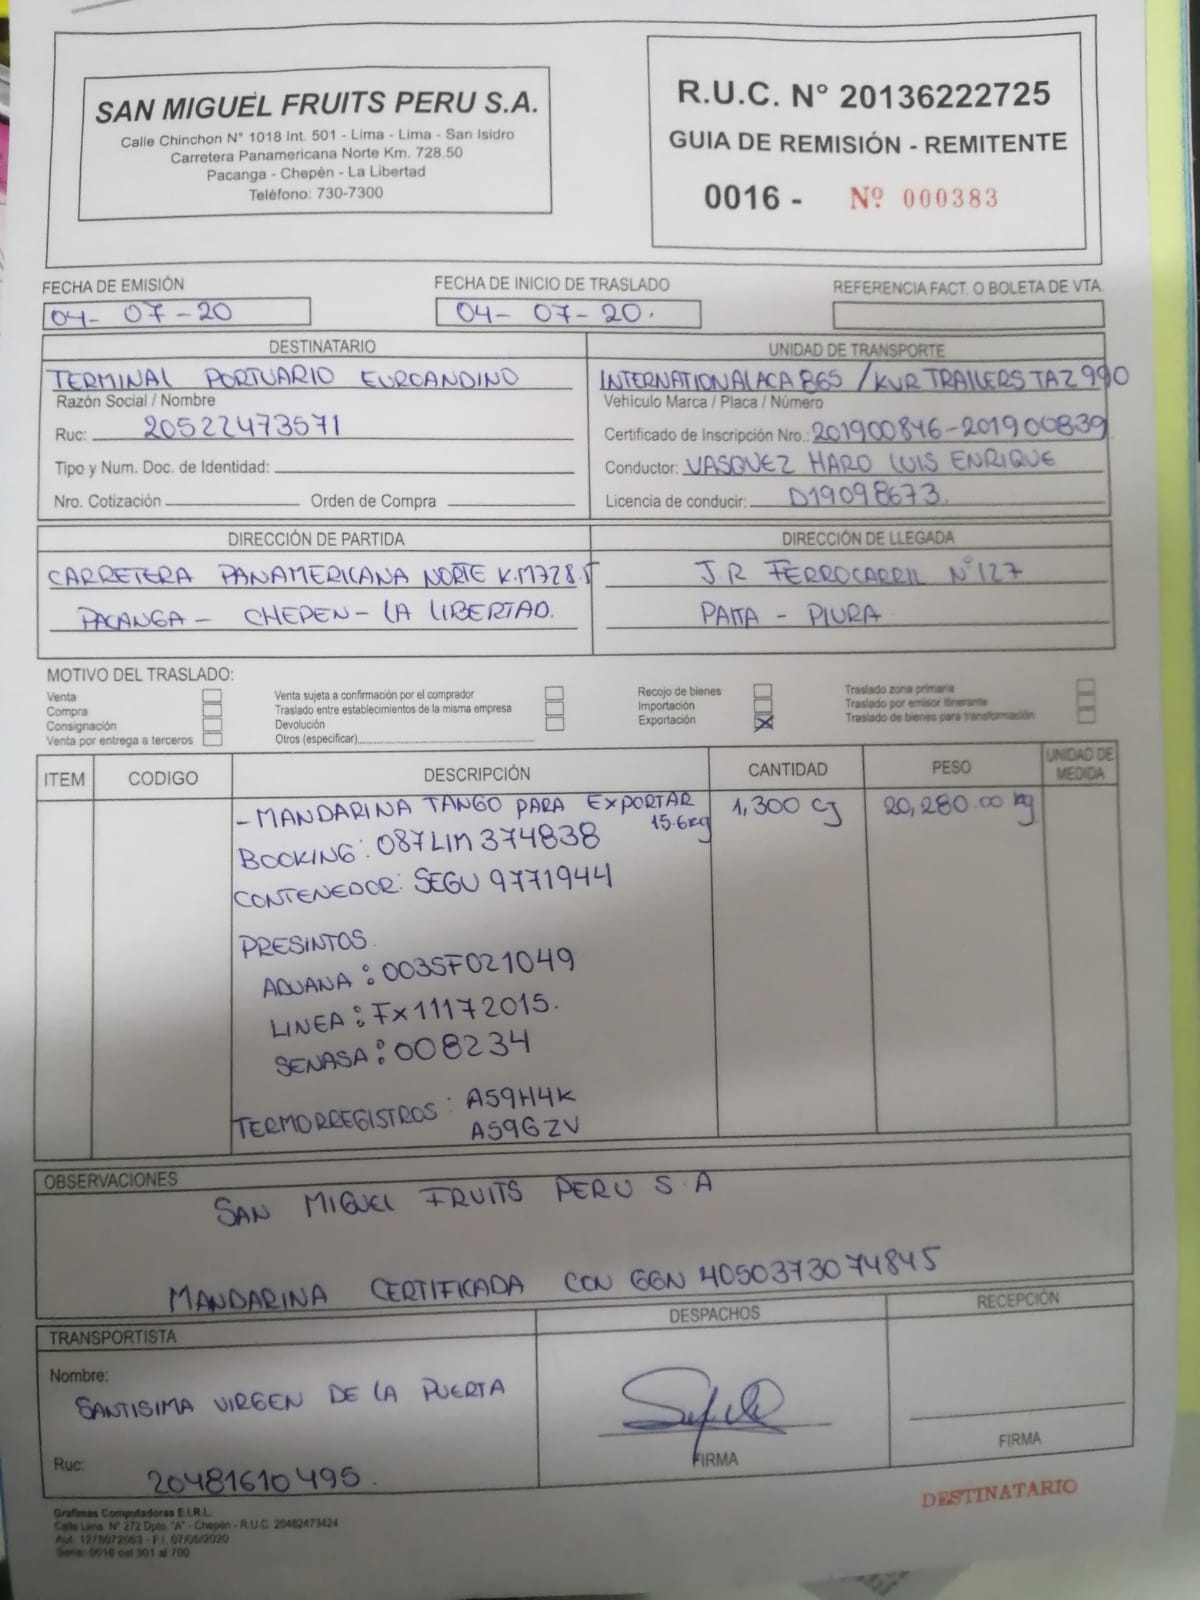 SAN MIGUEL FRUITS PERU S.A.
Calle Chinchon N° 1018 Int. 501 - Lima - Lima - San Isidro
Carretera Panamericana Norte Km. 728.50
Pacanga - Chepén - La Libertad
Teléfono: 730-7300
R.U.C. N° 20136222725
GUIA DE REMISIÓN - REMITENTE
0016 - Nº 000383
FECHA DE EMISIÓN
04- 07-20
FECHA DE INICIO DE TRASLADO
04- 07-20.
REFERENCIA FACT. O BOLETA DE VTA.
DESTINATARIO
TERMINAL PORTUARIO EUROANDINO
Razón Social / Nombre
Ruc: 20522473571
Tipo y Num. Doc. de Identidad:
Nro. Cotización Orden de Compra
UNIDAD DE TRANSPORTE
INTERNATIONAL ACA 865 / KUR TRAILERS TAZ 990
Vehículo Marca / Placa / Número
Certificado de Inscripción Nro.: 201900846-201900839
Conductor: VASQUEZ HARO LUIS ENRIQUE
Licencia de conducir: D19098673.
DIRECCIÓN DE PARTIDA
CARRETERA PANAMERICANA NORTE K.M 728.5
PACANGA - CHEPEN - LA LIBERTAD.
DIRECCIÓN DE LLEGADA
J.R FERROCARRIL N°127
PAITA - PIURA
MOTIVO DEL TRASLADO:
Venta
Compra
Consignación
Venta por entrega a terceros
Venta sujeta a confirmación por el comprador
Traslado entre establecimientos de la misma empresa
Devolución
Otros (especificar)
Recojo de bienes
Importación
Exportación X
Traslado zona primaria
Traslado por emisor itinerante
Traslado de bienes para transformación
ITEM CODIGO DESCRIPCIÓN CANTIDAD PESO UNIDAD DE MEDIDA
- MANDARINA TANGO PARA EXPORTAR 1,300 cj 20,280.00 kg
15.6kg
BOOKING: 087LIM374838
CONTENEDOR: SEGU 9771944
PRESINTOS
ADUANA: 003SF021049
LINEA: FX11172015.
SENASA: 008234
TERMORREGISTROS: A59H4K
A59GZV
OBSERVACIONES
SAN MIGUEL FRUITS PERU S.A
MANDARINA CERTIFICADA CON GGN 4050373074845
TRANSPORTISTA
Nombre:
SANTISIMA VIRGEN DE LA PUERTA
Ruc:
20481610495.
DESPACHOS
FIRMA
RECEPCIÓN
FIRMA
Grafimas Computadoras E.I.R.L.
Calle Lima N° 272 Dpto. "A" - Chepén - R.U.C. 20482473424
Aut. 1278072063 - F.I. 07/05/2020
Serie: 0016 del 301 al 700
DESTINATARIO